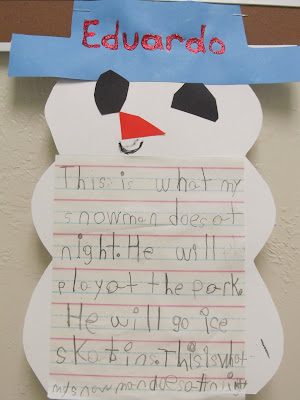 Eduardo
This is what my
snowman does at
night. He will
play at the park.
He will go ice
skating. This is what
my snowman does at night